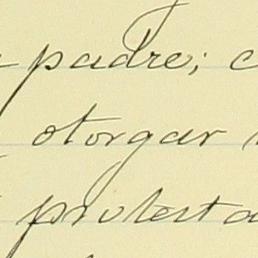 padre;
otorgar
protesta